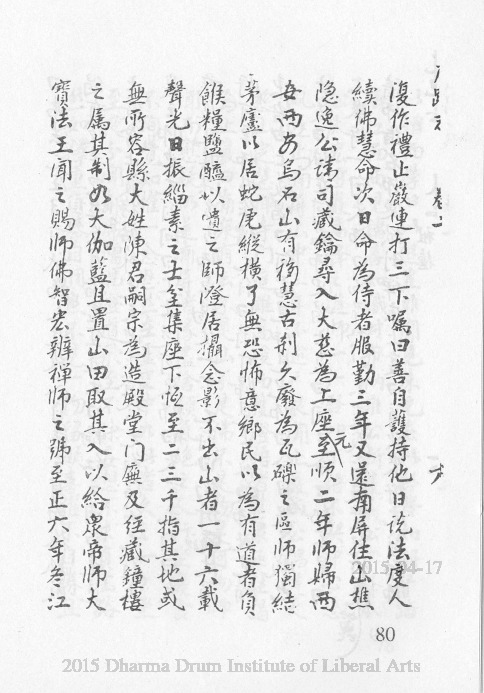 卷二
復作禮止巖連打三下囑曰善自護持他日說法度人
續佛慧命次日命為侍者服勤三年又還南屏住山樵
隐逸公請司藏鑰尋入大慈為上座至元順二年師歸西
安西安烏石山有福慧古刹久廢為瓦礫之區師獨結
茅廬以居蛇虎縱橫了無恐怖意鄉民以為有道者負
餱糧鹽醯以遺之師澄居攝念影不出山者一十六載
聲光日振緇素之士全集座下恆至二三千指其地或
無所容縣大姓陳君嗣宗為造殿堂门廡及徑藏鐘樓
之属其制如大伽藍且置山田取其入以給眾帝師大
寶法王聞之賜師佛智宏辨禪師之號至正六年冬江
80
2015-04-17
2015 Dharma Drum Institute of Liberal Arts